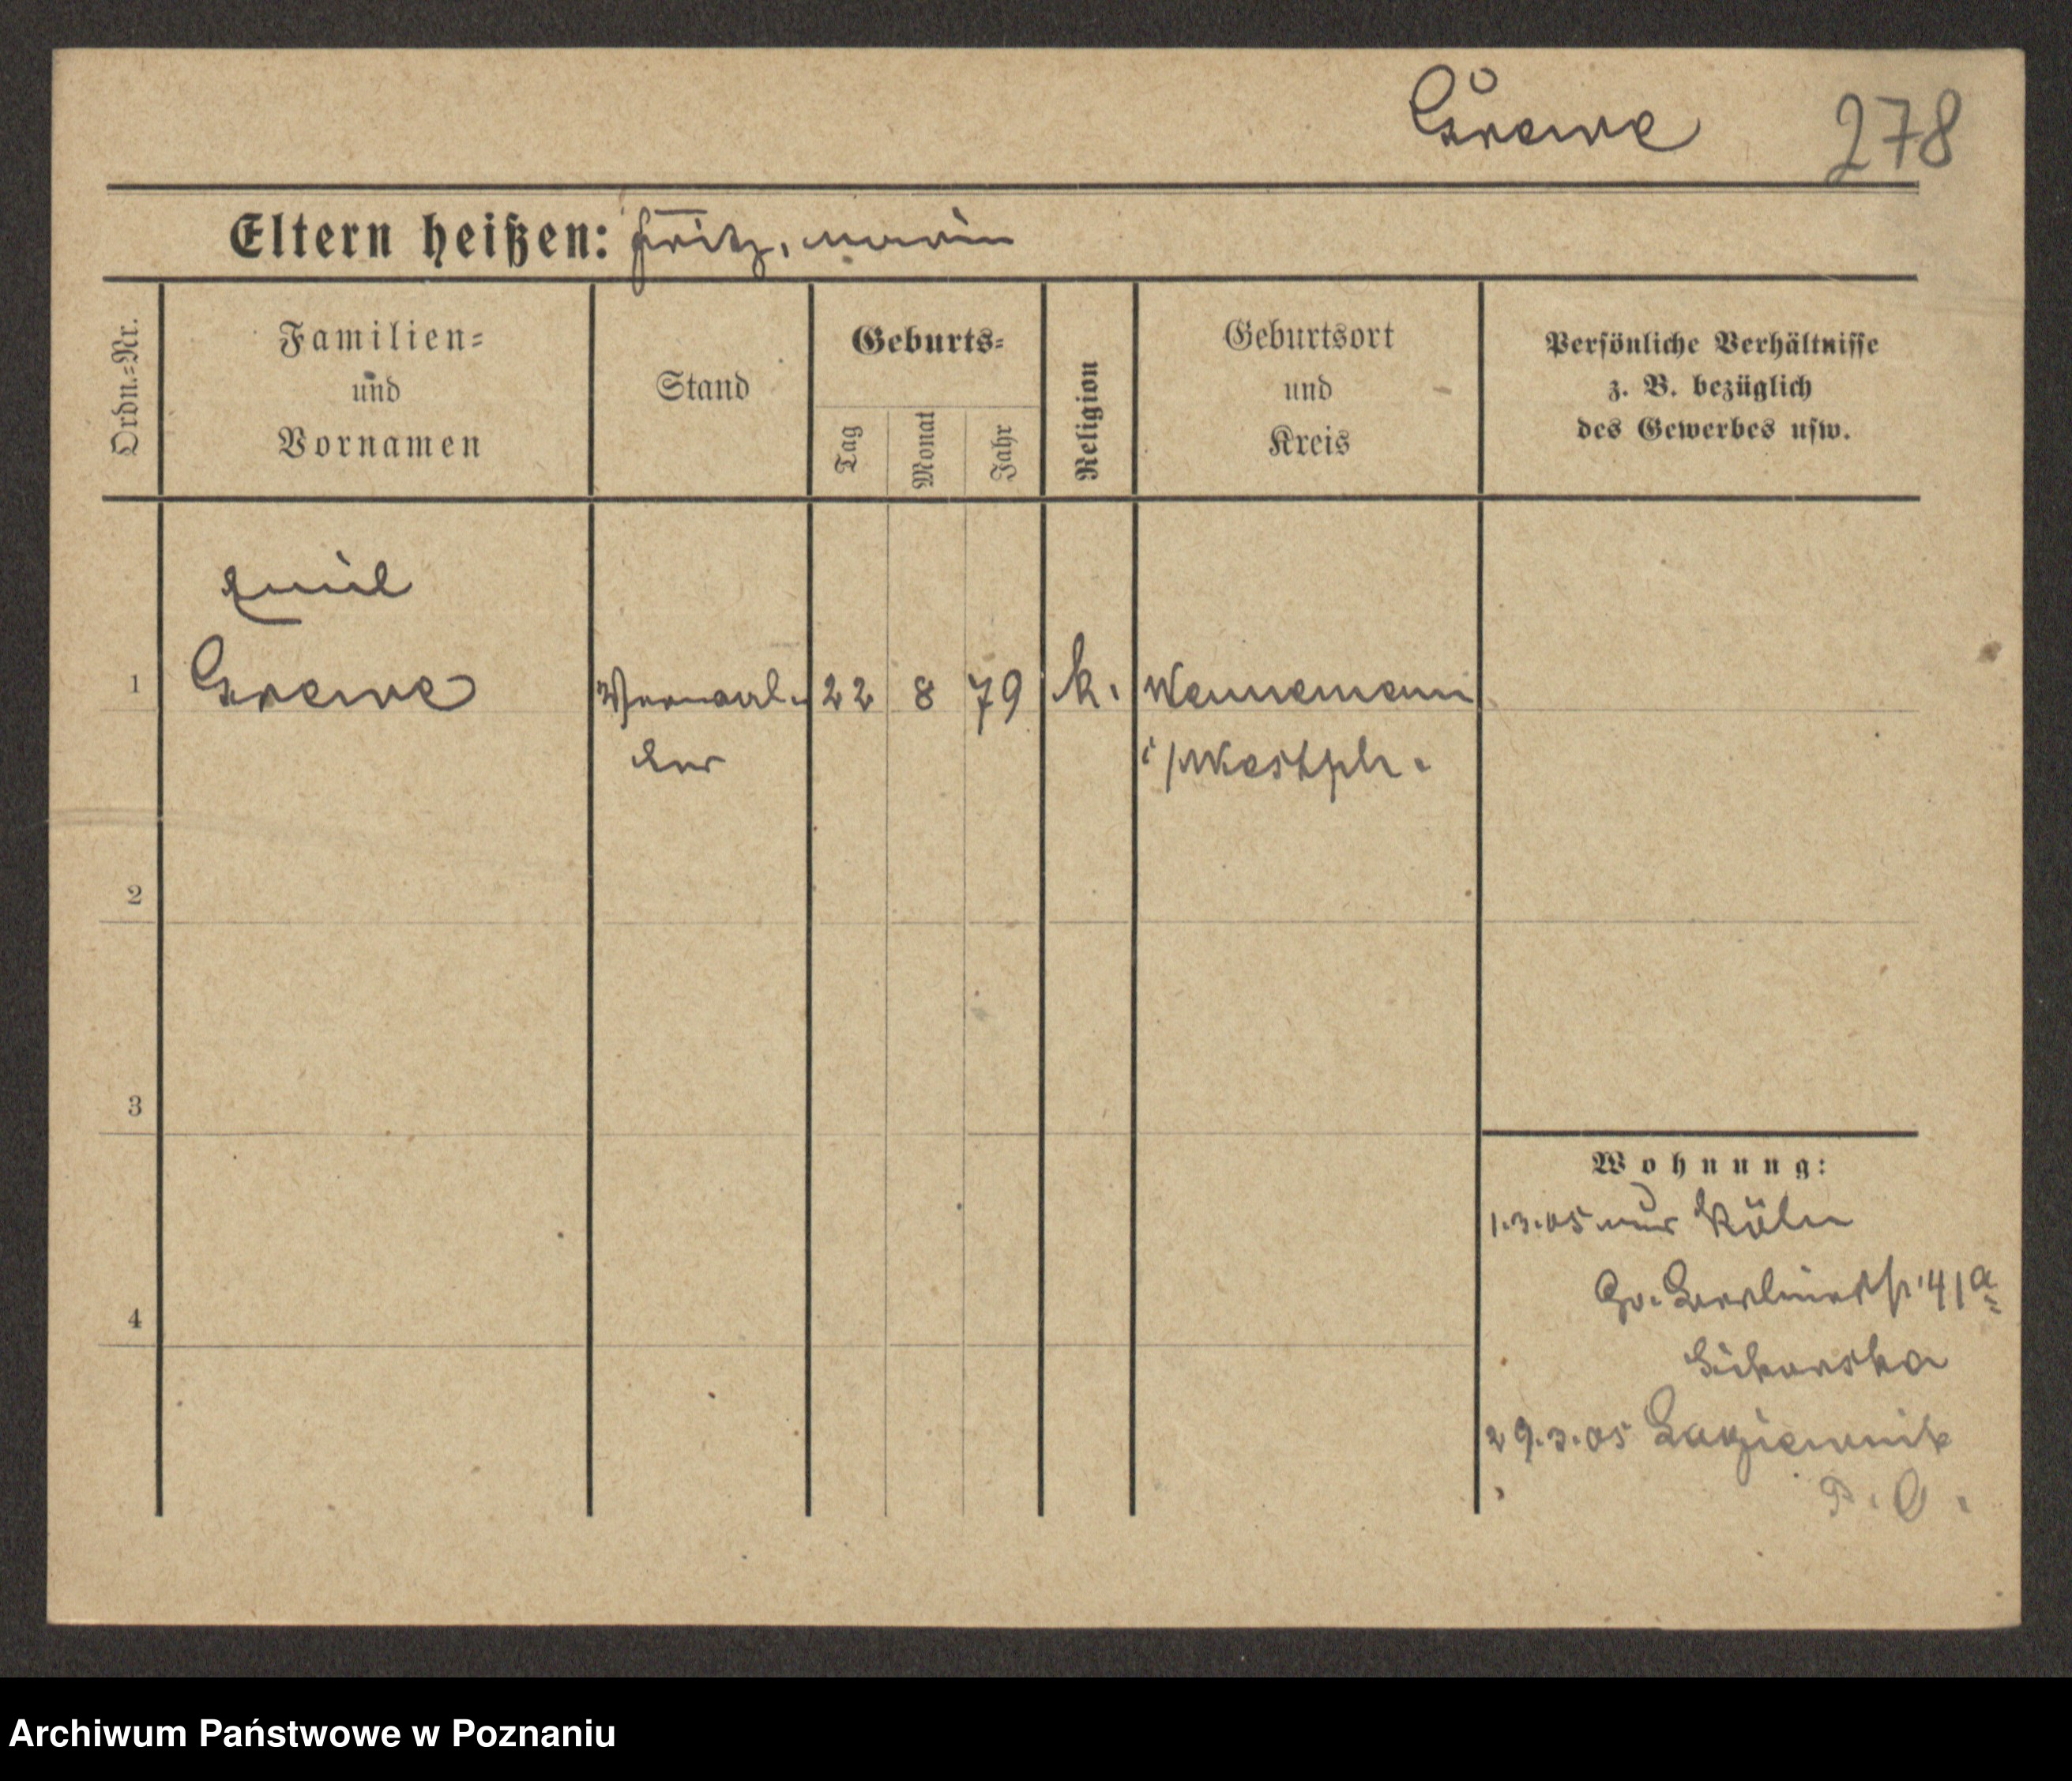 Grewe 278
Eltern heißen: Fritz, Maria
Ordn.=Nr.
Familien=
und
Vornamen
Stand
Geburts=
Tag
Monat
Jahr
Religion
Geburtsort
und
Kreis
Persönliche Verhältnisse
z. B. bezüglich
des Gewerbes usw.
Emil
1 Grewe 22 8 79 k. Wennemann
i/Westph.
2
3
4
Wohnung:
1.3.05 aus Köln
Gr. Berlinerstr. 41a
Sikorska
29.3.05
P. O.
Archiwum Państwowe w Poznaniu